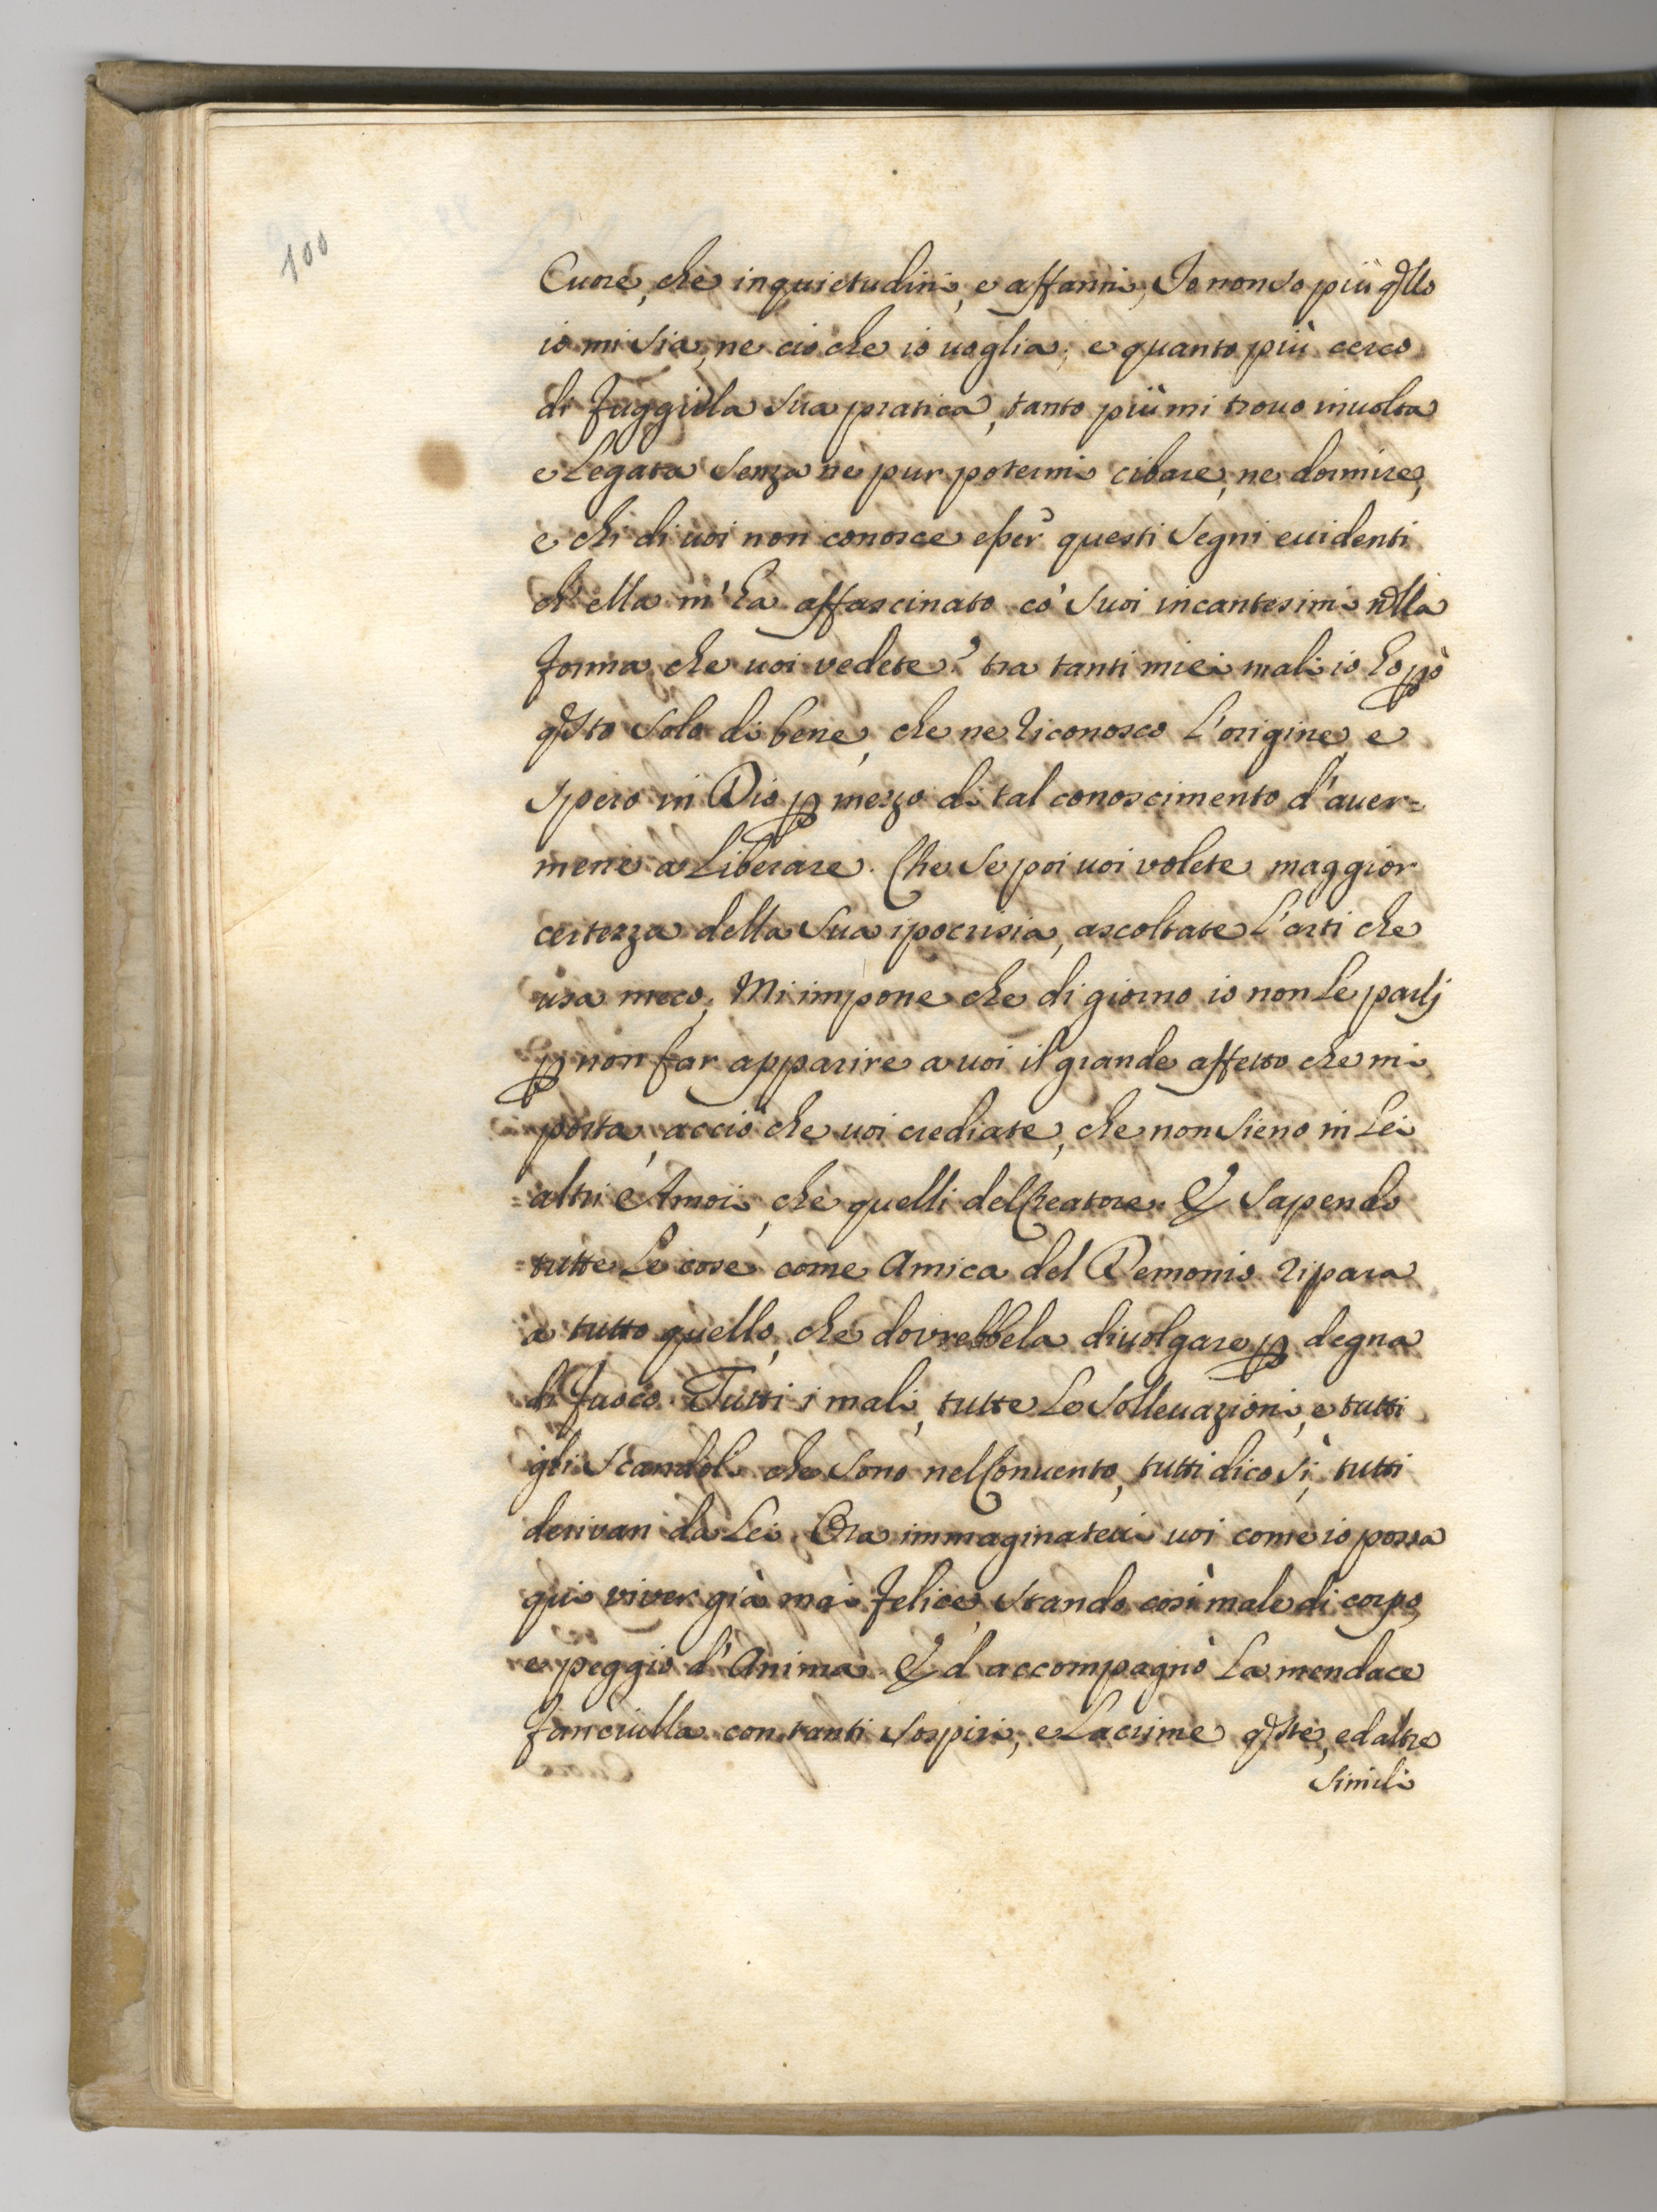 100
Cuore, che inquietudini, e affanni, Io non so più qllo
io mi sia, ne ciò che io uoglia; e quanto più cerco
di fuggir la sua pratica, tanto più mi trouo inuolta
e Legata senza ne pur potermi cibare, ne dormire,
e chi di uoi non conosce esser questi segni euidenti
ch'ella m'ha affascinato co' suoi incantesimi nlla
forma che uoi vedete? tra tanti miei mali io ho pò
qsto solo di bene, che ne riconosco L'origine, e
spero in Dio p mezzo di tal conoscimento d'auer=
mene a Liberare. Che se poi uoi volete maggior
certezza della sua ipocrisia, ascoltate L'arti che
usa meco; Mi impone che di giorno io non Le parlj
p non far apparire a uoi il grande affetto che mi
porta, acciò che uoi crediate, che non sieno in Lei
altri Amori, che quelli del Creatore. Et sapendo
tutte Le cose come Amica del Demonio ripara
a tutto quello, che dovrebbela diuolgare p degna
di fuoco. Tutti i mali, tutte Le solleuazioni, e tutti
gli scandoli che sono nel Conuento, tutti dico sì, tutti
derivan da Lei. Ora immaginateui uoi come io possa
qui viver già mai felice stando così male di corpo,
e peggio d'Anima. Ed accompagnò La mendace
fanciulla con tanti sospiri, e Lacrime qste, ed altre
simili